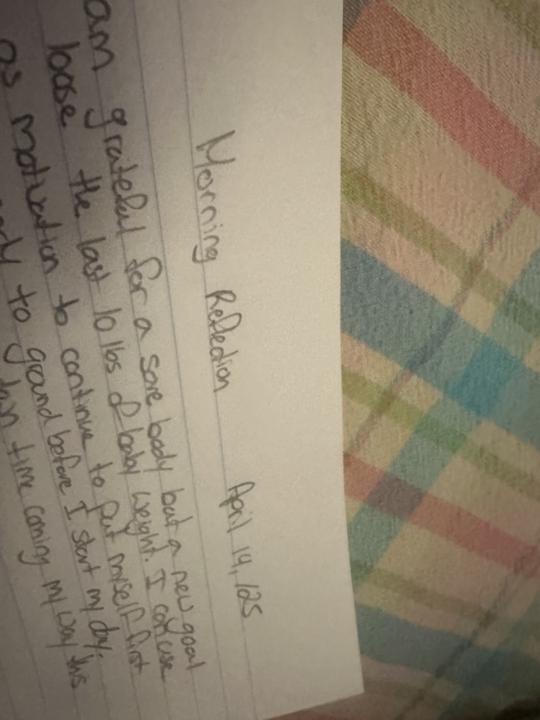 Morning Reflection April 14, 125
am grateful for a sore body but a new goal
loose the last 10 lbs of baby weight. I can use
as motivation to continue to put myself first
to ground before I start my day.
time coming my way this